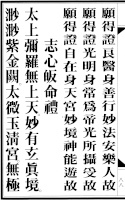 願得證良醫身善行妙法安樂人故
願得證光明身常爲帝光所攝受故
願得證自在身天宮妙境神能遊故
志心皈命禮
太上彌羅無上天妙有玄眞境
渺渺紫金闕太微玉淸宮無極